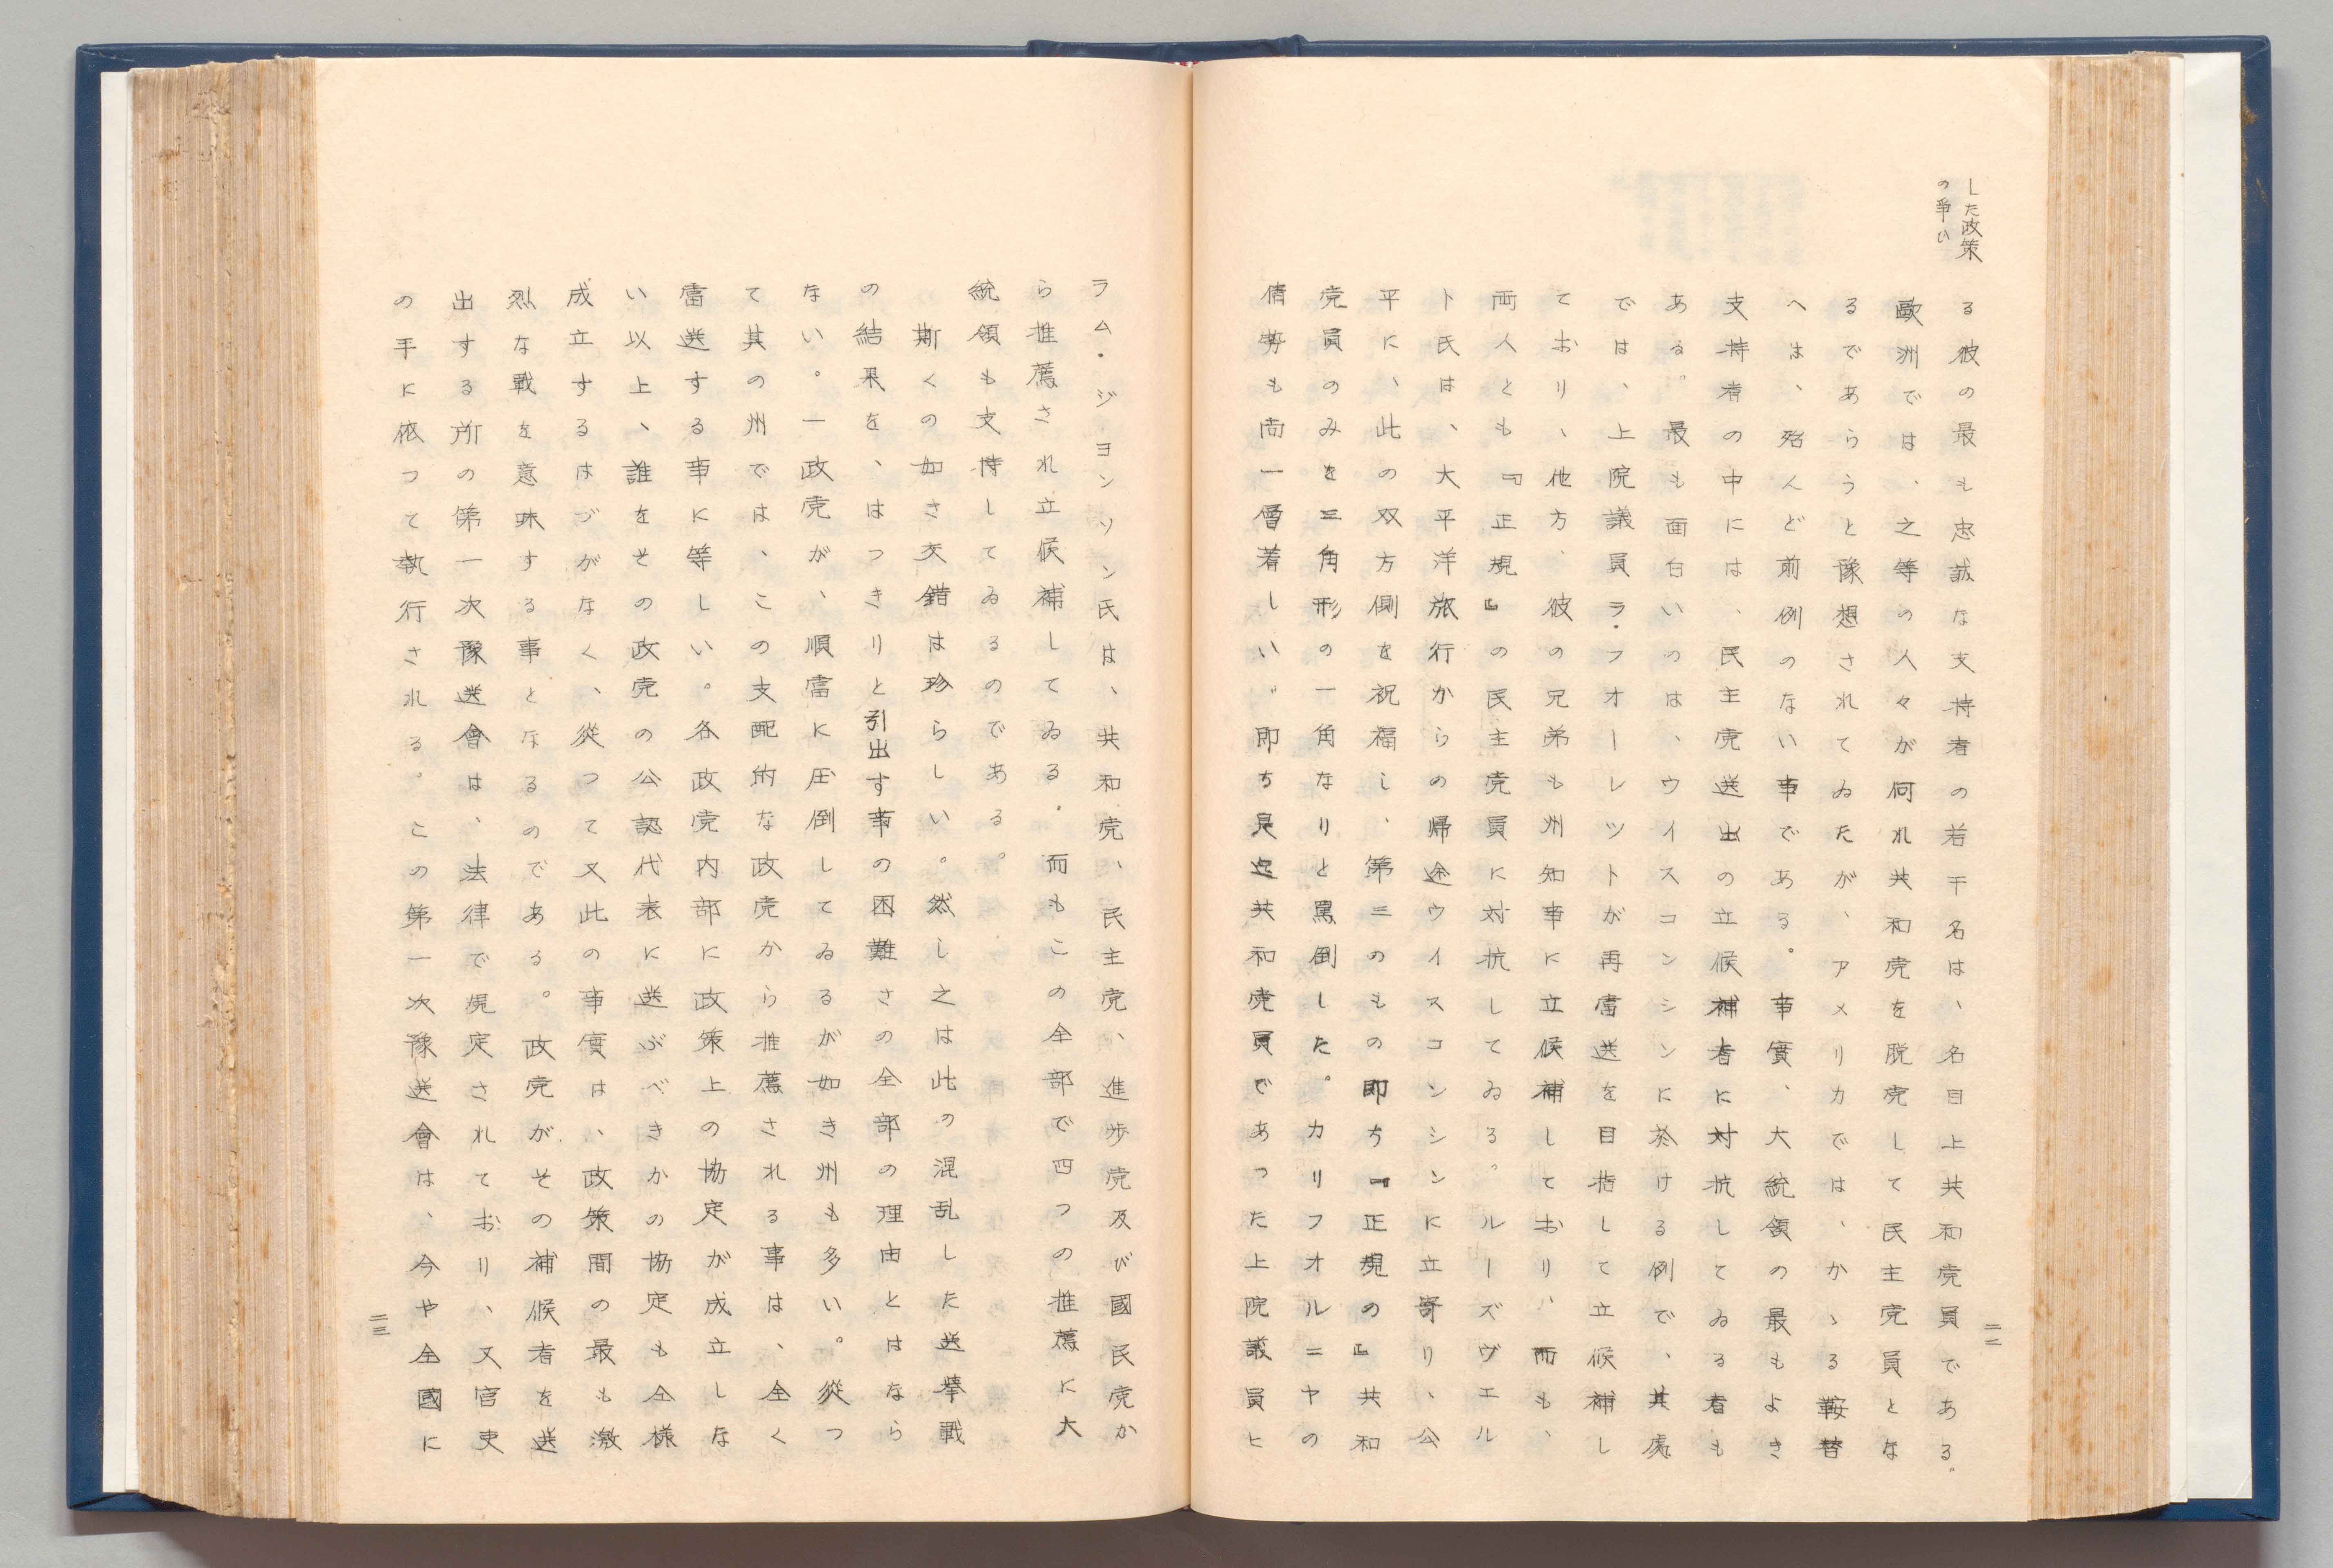 した政策
の争ひ
る彼の最も忠誠な支持者の若干名は、名目上共和党員である。
歐洲では、之等の人々が何れ共和党を脱党して民主党員とな
るであらうと豫想されてゐたが、アメリカでは、かゝる鞍替
へは、殆んど前例のない事である。事實、大統領の最もよき
支持者の中には、民主党送出の立候補者に対抗してゐる者も
ある。最も面白いのは、ウイスコンシンに於ける例で、其處
では、上院議員ラ・フオーレツトが再當送を目指して立候補し
ており、他方、彼の兄弟も州知事に立候補しており、而も、
両人とも『正規』の民主党員に対抗してゐる。ルーズヴエル
ト氏は、大平洋旅行からの帰途ウイスコンシンに立寄り、公
平に、此の双方側を祝福し、第三のもの即ち『正規の』共和
党員のみを三角形の一角なりと罵倒した。カリフオルニヤの
情勢も尚一層著しい。即ち最近共和党員であつた上院議員ヒ
二二
ラム・ジヨンソン氏は、共和党、民主党、進歩党及び國民党か
ら推薦され立候補してゐる。而もこの全部で四つの推薦に大
統領も支持してゐるのである。
斯くの如き交錯は珍らしい。然し之は此の混乱した送挙戰
の結果を、はつきりと引出す事の困難さの全部の理由とはなら
ない。一政党が、順當に圧倒してゐるが如き州も多い。從つ
て其の州では、この支配的な政党から推薦される事は、全く
當送する事に等しい。各政党内部に政策上の協定が成立しな
い以上、誰をその政党の公認代表に送ぶべきかの協定も仝様
成立するはづがなく、從つて又此の事實は、政策間の最も激
烈な戰を意味する事となるのである。政党がその補候者を送
出する所の第一次豫送會は、法律で規定されており、又官吏
の手に依つて執行される。この第一次豫送會は、今や全國に
二三